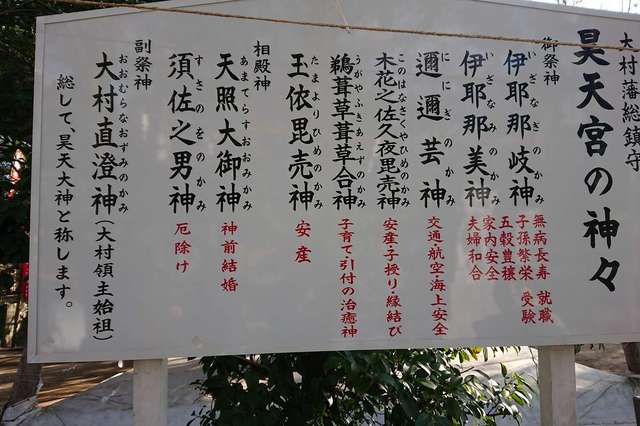 大村藩総鎮守
昊天宮の神々
御祭神
いざなぎのかみ
伊耶那岐神
無病長寿 就職
子孫繁栄 受験
五穀豊穣
いざなみのかみ
伊耶那美神
家内安全
夫婦和合
ににぎのかみ
邇邇芸神
交通・航空・海上安全
このはなさくやひめのかみ
木花之佐久夜毘売神
安産・子授り・縁結び
うがやふきあえずのかみ
鵜葺草葺草合神
子育て・引付の治癒神
たまよりひめのかみ
玉依毘売神
安産
相殿神
あまてらすおおみかみ
天照大御神
神前結婚
すさのをのかみ
須佐之男神
厄除け
副祭神
おおむらなおずみのかみ
大村直澄神(大村領主始祖)
総して、昊天大神と称します。